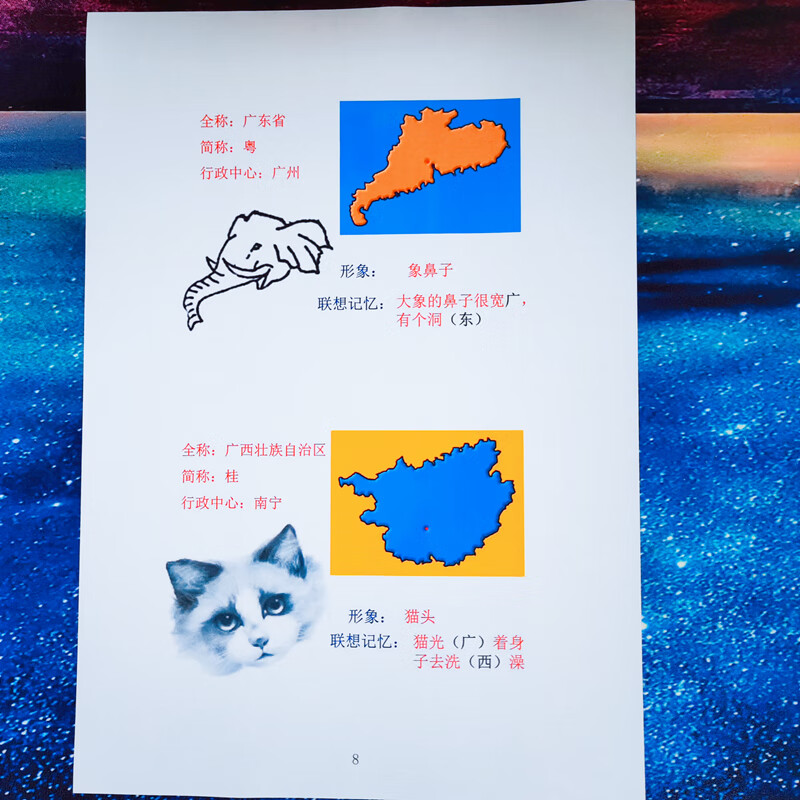 全称：广东省
简称：粤
行政中心：广州
形象： 象鼻子
联想记忆：大象的鼻子很宽广，
有个洞（东）
全称：广西壮族自治区
简称：桂
行政中心：南宁
形象： 猫头
联想记忆： 猫光（广）着身
子去洗（西）澡
8